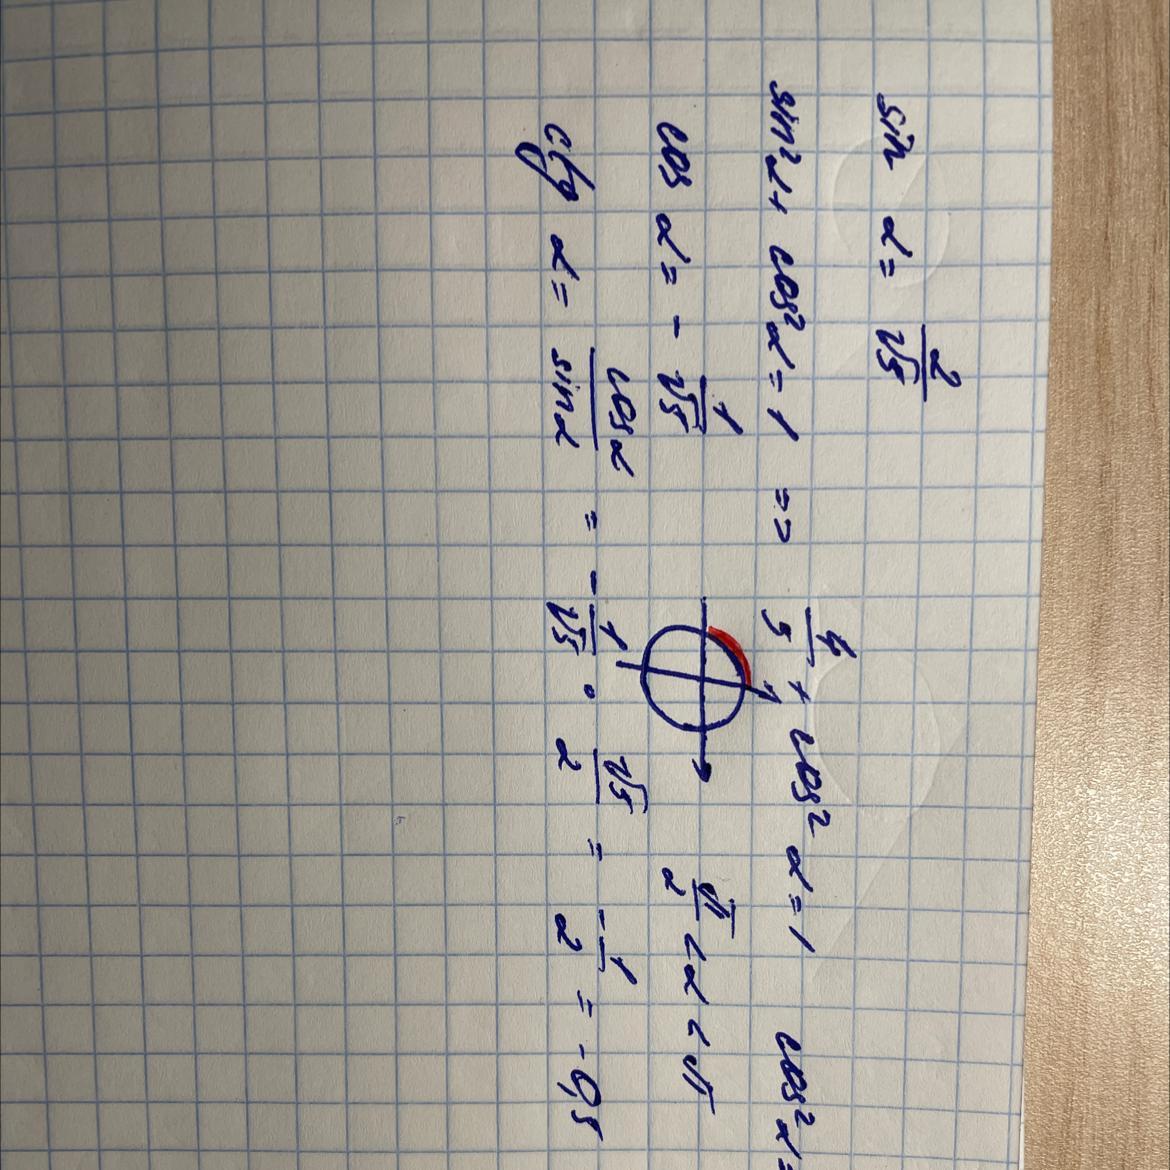 sin α = 2/√5
sin²α + cos²α = 1 => 4/5 + cos²α = 1 cos²α =
cos α = - 1/√5 π/2 < α < π
ctg α = cosα/sinα = - 1/√5 · √5/2 = - 1/2 = -0,5